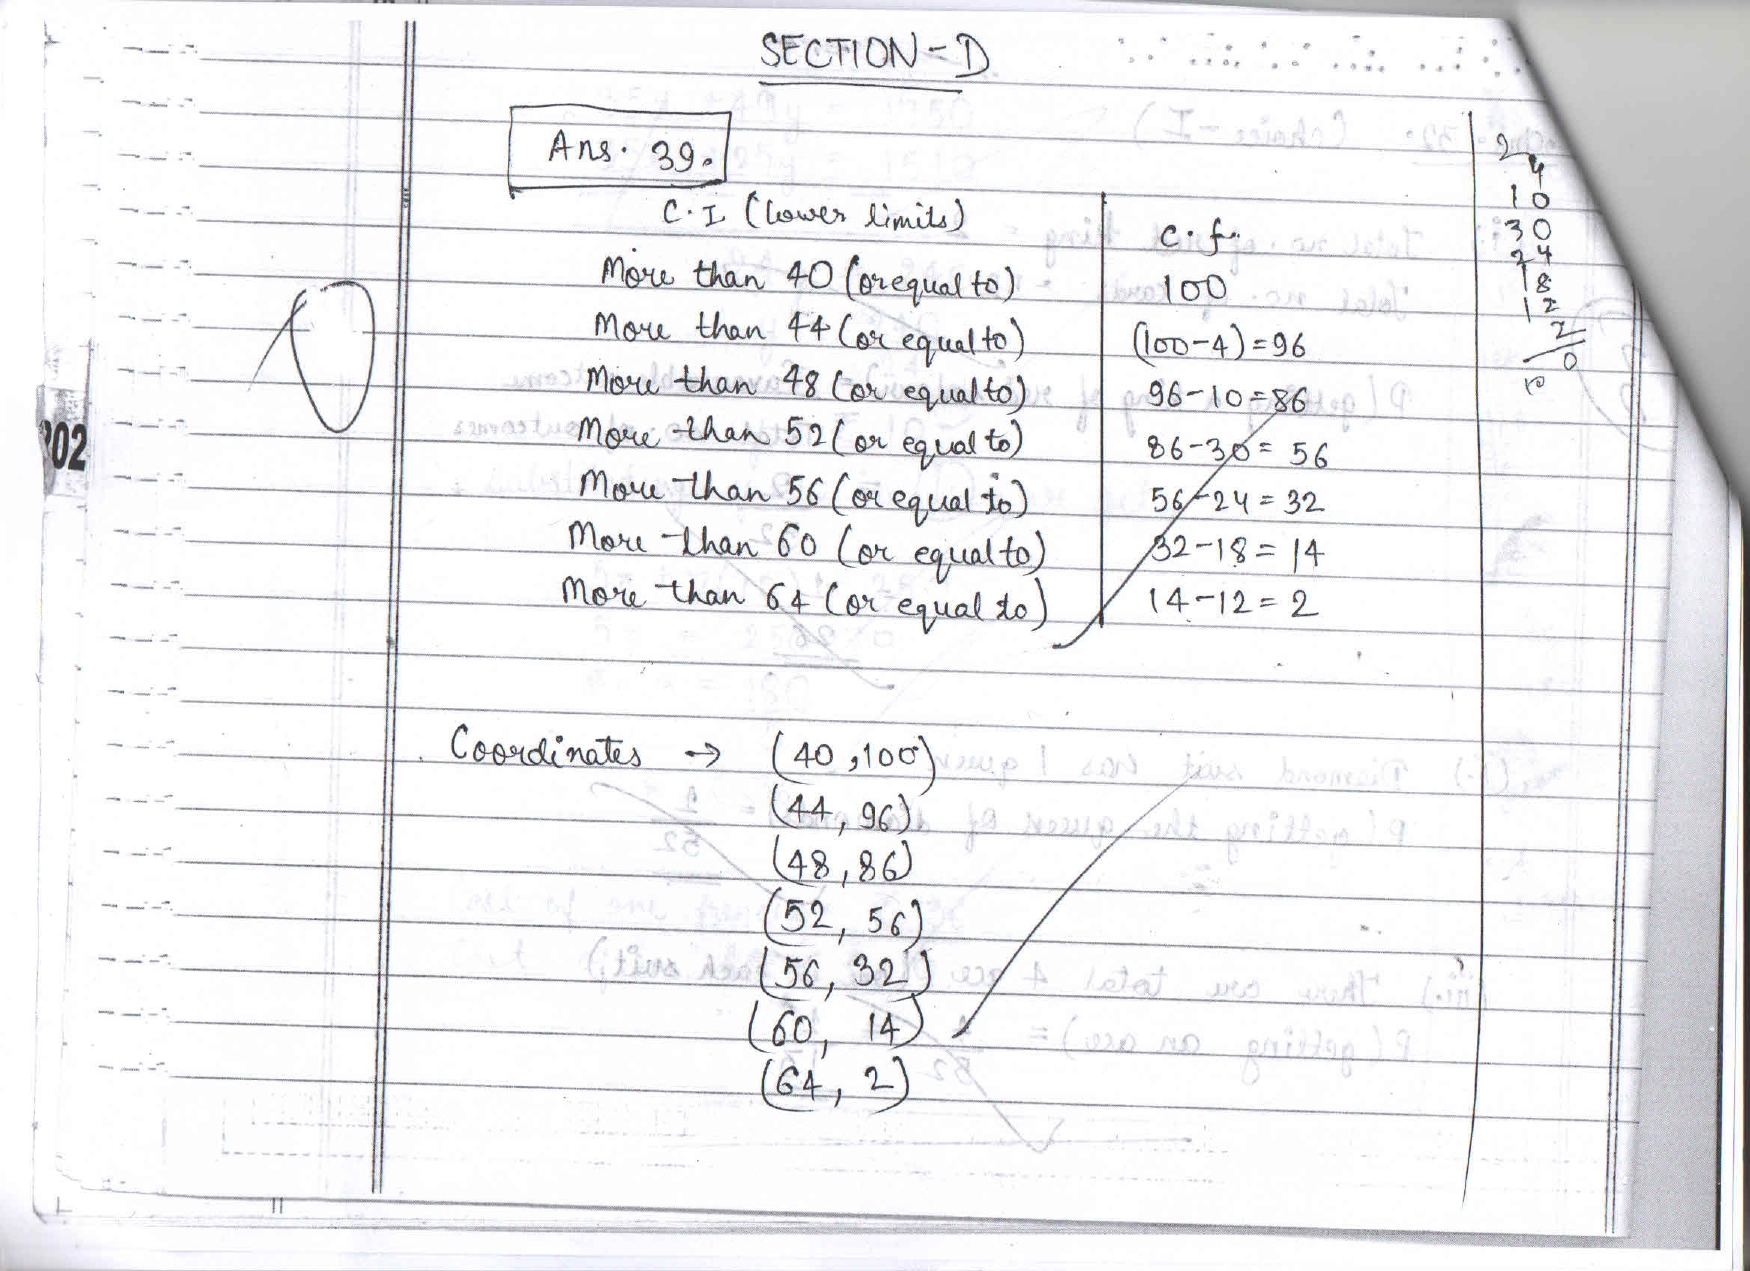 SECTION-D
Ans. 39.
C.I (lower limits) c.f.
More than 40 (or equal to) 100
More than 44 (or equal to) (100-4)=96
More than 48 (or equal to) 96-10=86
More than 52 (or equal to) 86-30= 56
More than 56 (or equal to) 56-24=32
More than 60 (or equal to) 32-18= 14
More than 64 (or equal to) 14-12=2
Coordinates → (40,100)
(44, 96)
(48,86)
(52, 56)
(56, 32)
(60, 14)
(64, 2)
4
10
30
24
18
12
2
0
202